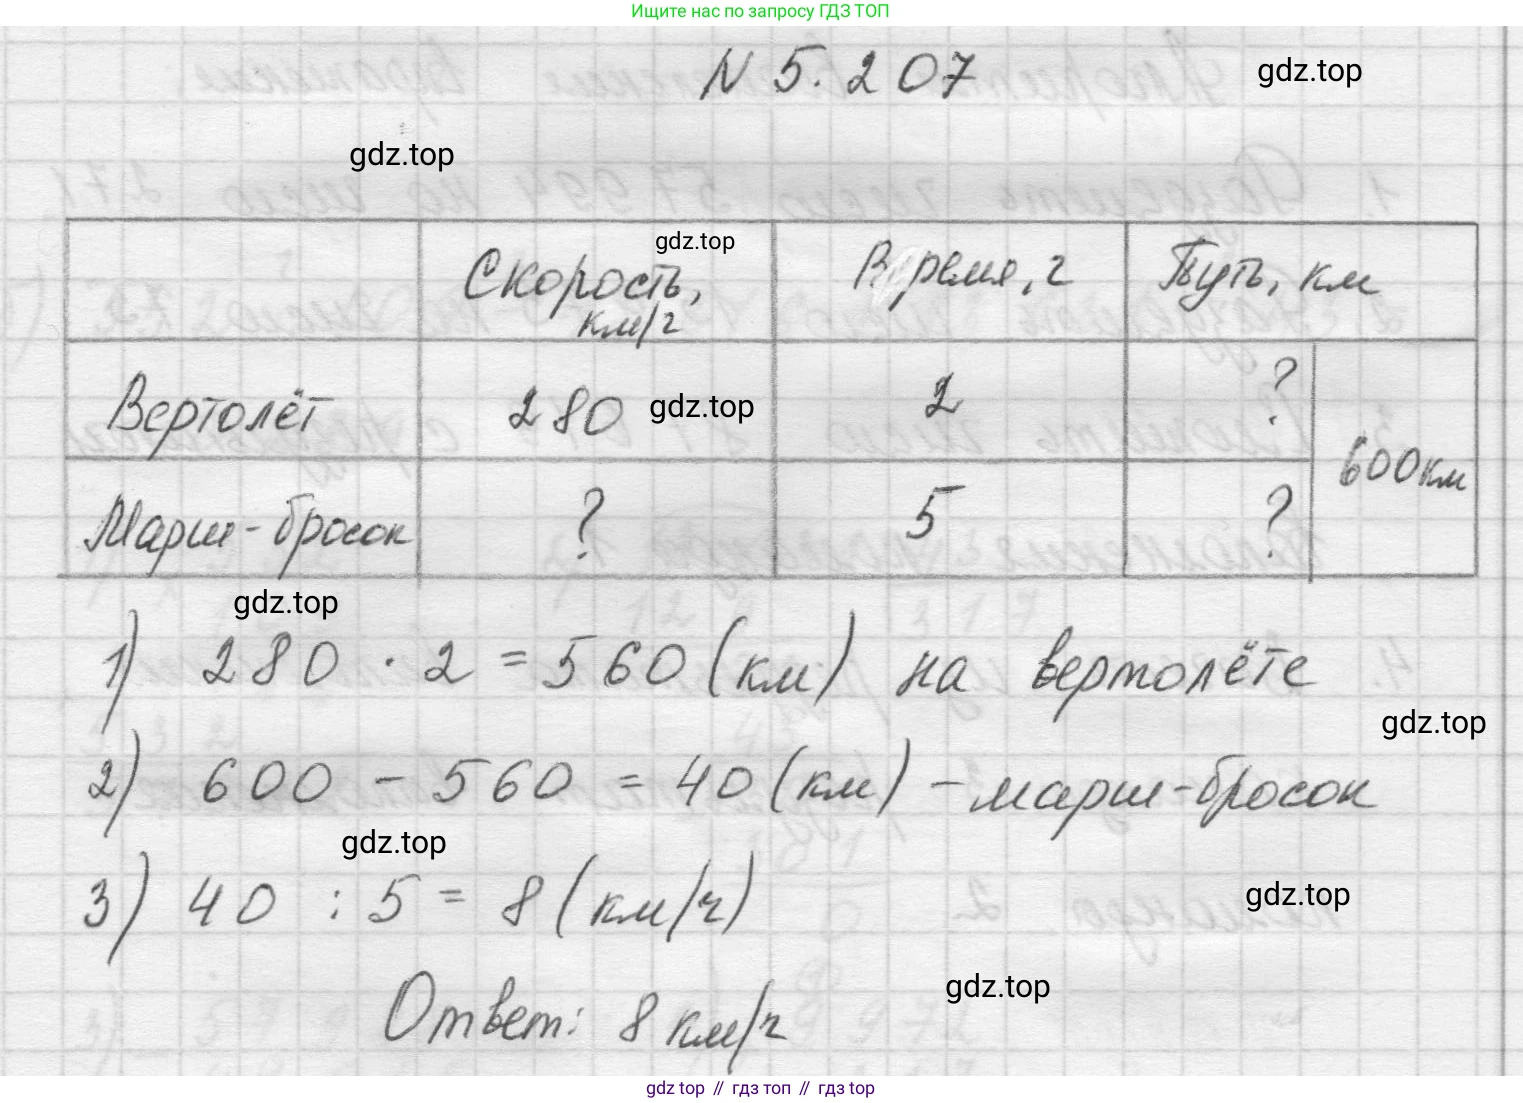 Ищите нас по запросу ГДЗ ТОП
N 5.207
gdz.top
gdz.top
gdz.top
Скорость, км/ч
Время, ч
Путь, км
Вертолёт
280
gdz.top
2
?
600км
Марш-бросок
?
5
?
gdz.top
1) 280 · 2 = 560 (км) на вертолёте
gdz.top
2) 600 - 560 = 40 (км) - марш-бросок
gdz.top
3) 40 : 5 = 8 (км/ч)
gdz.top
gdz.top
Ответ: 8 км/ч
gdz top // гдз топ // гдз top